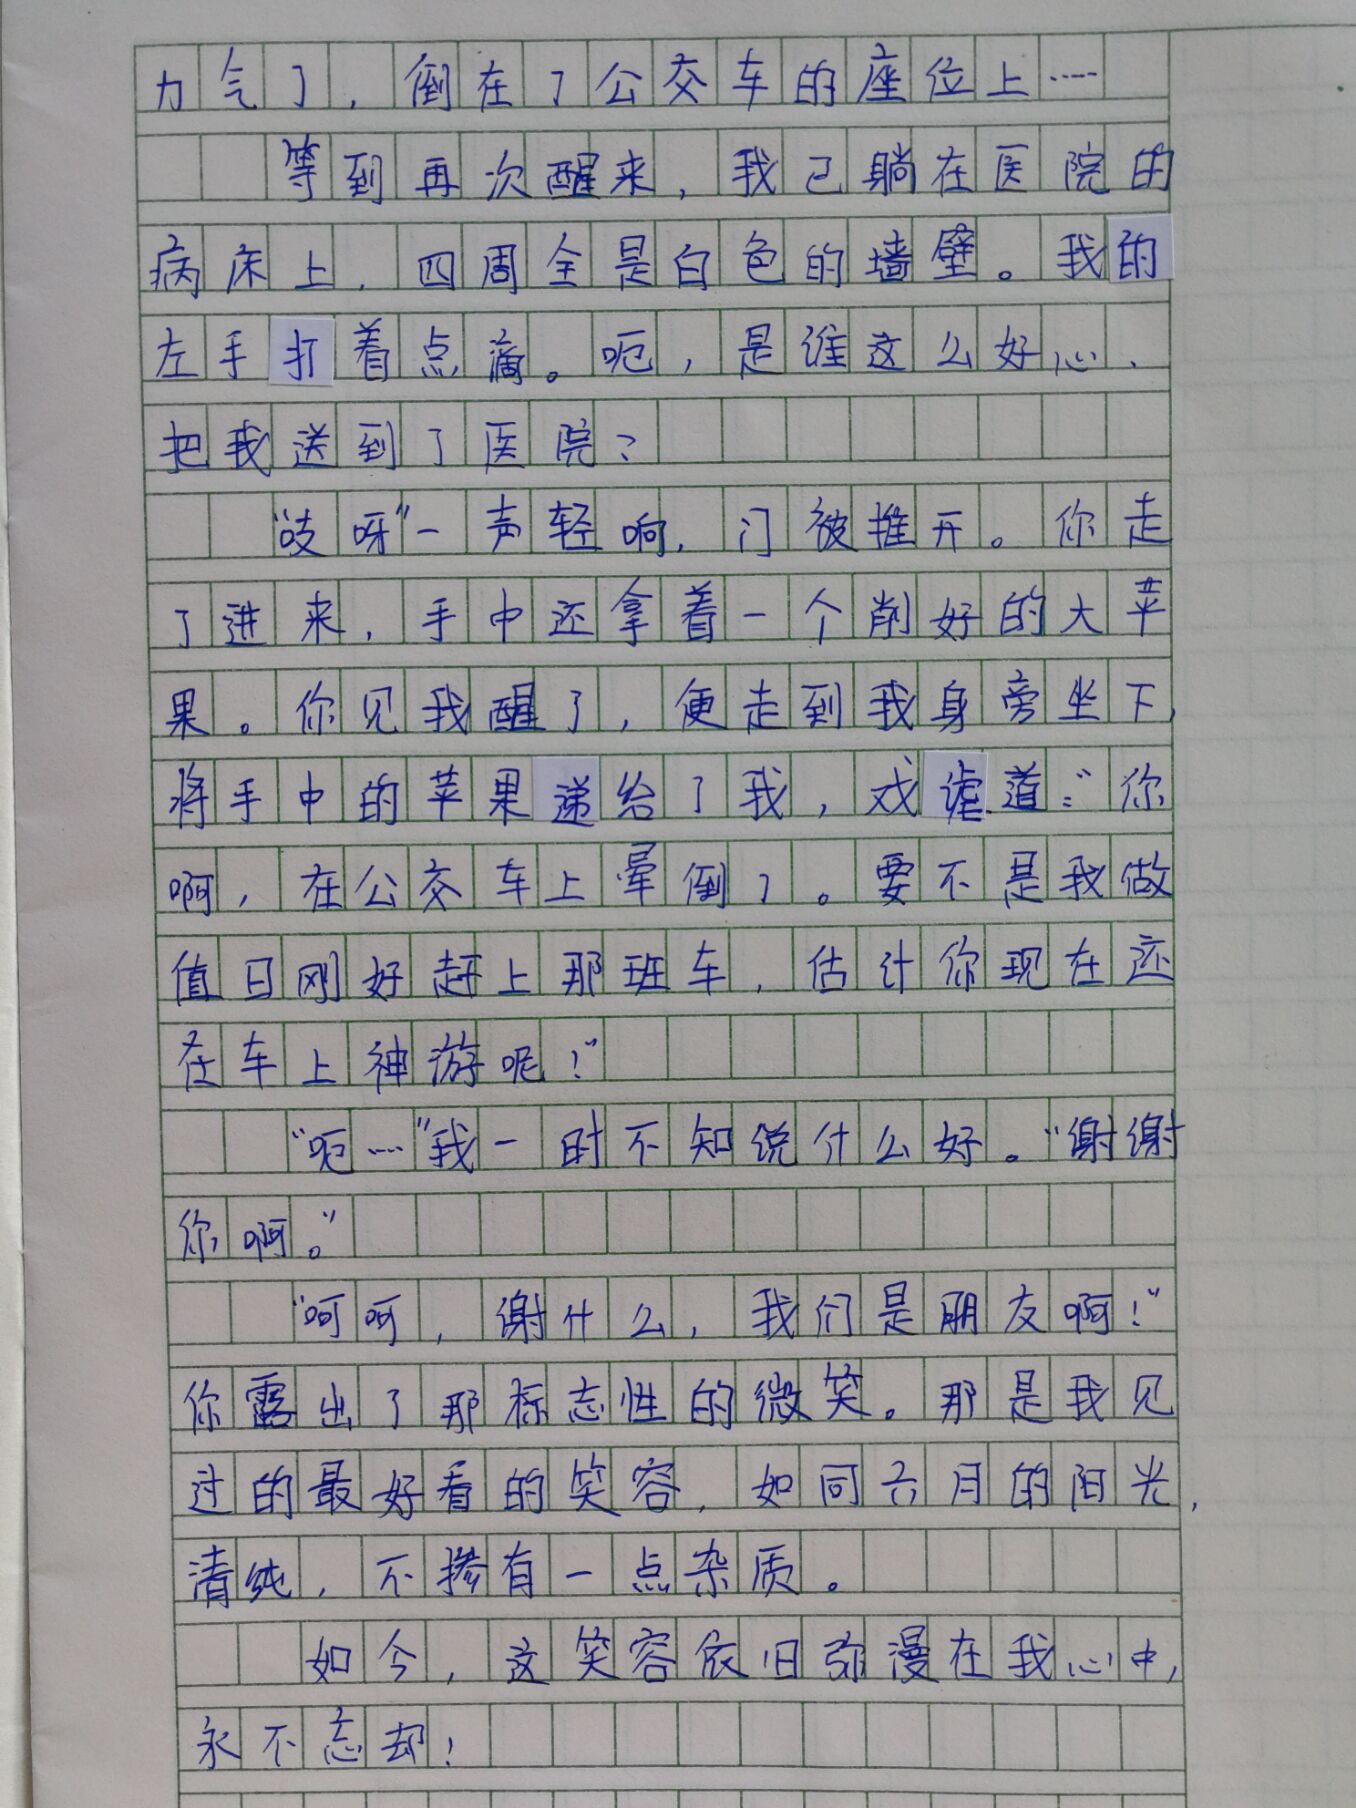 力气了，倒在了公交车的座位上……
等到再次醒来，我已躺在医院的
病床上，四周全是白色的墙壁。我的
左手打着点滴。呃，是谁这么好心、
把我送到了医院？
“吱呀”一声轻响，门被推开。你走
了进来，手中还拿着一个削好的大苹
果。你见我醒了，便走到我身旁坐下，
将手中的苹果递给了我，戏谑道：“你
啊，在公交车上晕倒了。要不是我做
值日刚好赶上那班车，估计你现在还
在车上神游呢！”
“呃……”我一时不知说什么好。“谢谢
你啊。”
“呵呵，谢什么，我们是朋友啊！”
你露出了那标志性的微笑。那是我见
过的最好看的笑容，如同六月的阳光，
清纯，不掺有一点杂质。
如今，这笑容依旧弥漫在我心中，
永不忘却！